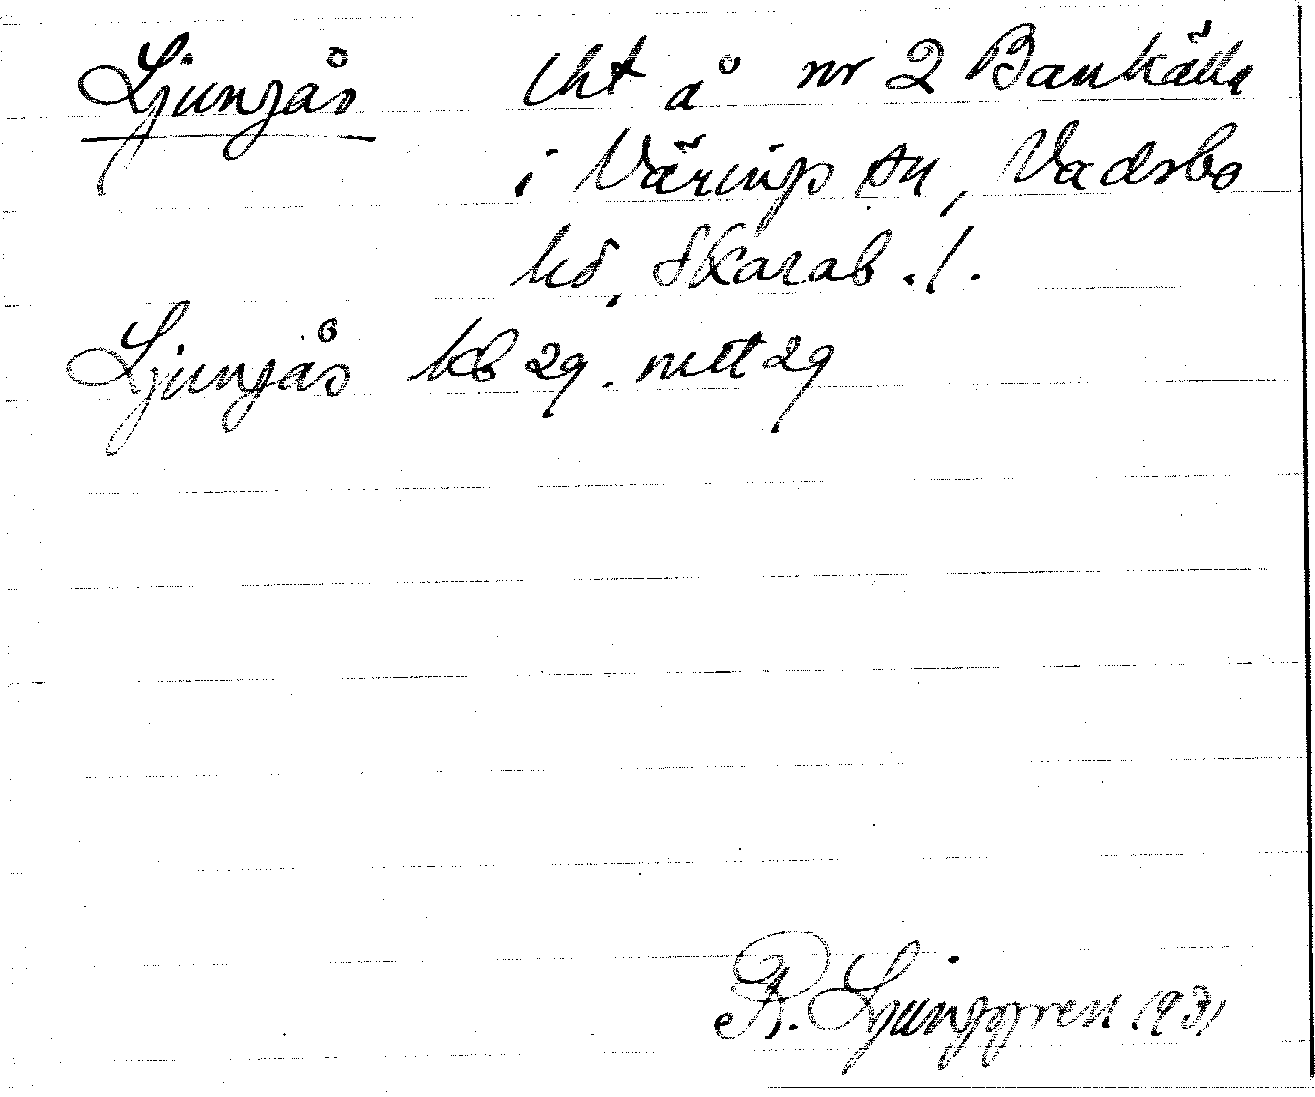 Ljungås lht å nr 2 Bankälla
i Värings sn, Vadsbo
hd, Skarab. l.
Ljungås kb 29. mtl 29
R. Ljunggren 1931